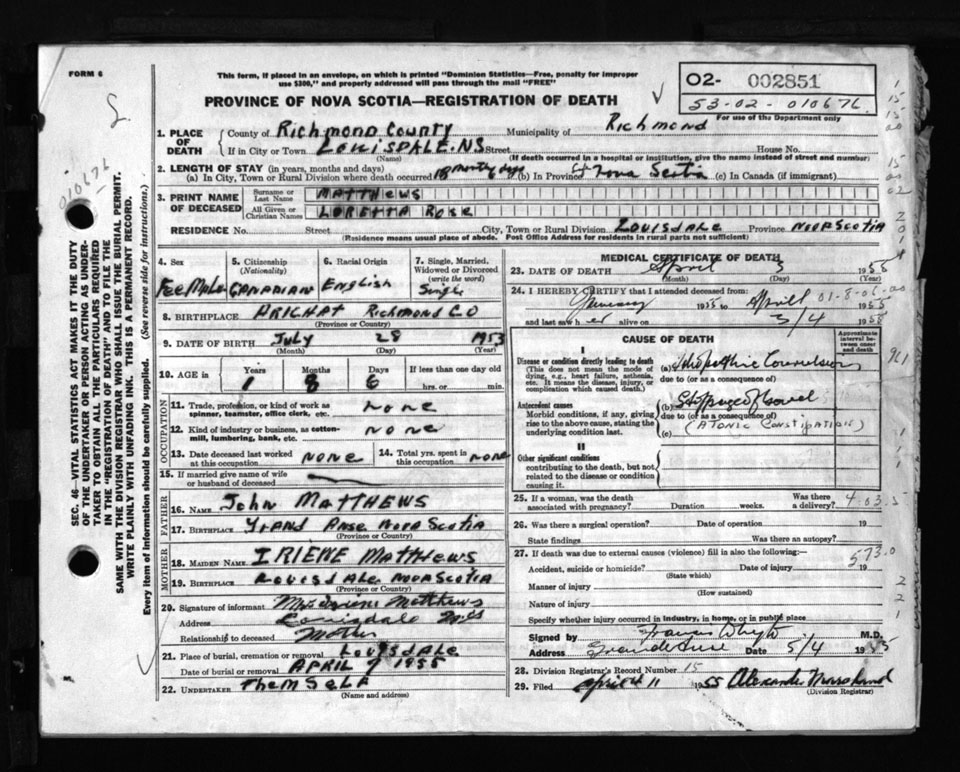 FORM 6
This form, if placed in an envelope, on which is printed "Dominion Statistics—Free, penalty for improper
use $300," and properly addressed will pass through the mail "FREE"
PROVINCE OF NOVA SCOTIA—REGISTRATION OF DEATH
O2- 002851
53-02-010676
For use of the Department only
1. PLACE OF DEATH
County of Richmond County Municipality of Richmond
If in City or Town LOUISDALE. N.S Street House No.
(Name) (If death occurred in a hospital or institution, give the name instead of street and number)
2. LENGTH OF STAY (in years, months and days)
(a) In City, Town or Rural Division where death occurred (b) In Province Nova Scotia (c) In Canada (if immigrant)
3. PRINT NAME OF DECEASED
Surname or Last Name MATTHEWS
All Given or Christian Names LORETTA ROSE
RESIDENCE No. Street City, Town or Rural Division LOUISDALE Province NOVA SCOTIA
(Residence means usual place of abode. Post Office Address for residents in rural parts not sufficient)
4. Sex FeeMale
5. Citizenship (Nationality) CANADIAN
6. Racial Origin English
7. Single, Married, Widowed or Divorced (write the word) Single
8. BIRTHPLACE ARICHAT RICHMOND CO
(Province or Country)
9. DATE OF BIRTH July 28 1953
(Month) (Day) (Year)
10. AGE in Years Months Days If less than one day old
1 8 6 hrs. or min.
OCCUPATION
11. Trade, profession, or kind of work as spinner, teamster, office clerk, etc. none
12. Kind of industry or business, as cotton-mill, lumbering, bank, etc. none
13. Date deceased last worked at this occupation NONE
14. Total yrs. spent in this occupation none
15. If married give name of wife or husband of deceased
FATHER
16. NAME John MATTHEWS
17. BIRTHPLACE Anse NOVA SCOTIA
(Province or Country)
MOTHER
18. MAIDEN NAME IRIENE Matthews
19. BIRTHPLACE LOUISDALE NOVA SCOTIA
(Province or Country)
20. Signature of informant Matthews
Address Louisdale N.S
Relationship to deceased Mother
21. Place of burial, cremation or removal LOUISDALE
Date of burial or removal APRIL 1955
22. UNDERTAKER Them SELF
(Name and address)
MEDICAL CERTIFICATE OF DEATH
23. DATE OF DEATH April 3 1955
(Month) (Day)
24. I HEREBY CERTIFY that I attended deceased from:
January 1955 to April 1955
and last saw her alive on 3/4 1955
01-8-06-00
CAUSE OF DEATH
Approximate interval between onset and death
I
Disease or condition directly leading to death
(This does not mean the mode of dying, e.g., heart failure, asthenia, etc. It means the disease, injury, or complication which caused death.)
(a)
due to (or as a consequence of)
Antecedent causes
Morbid conditions, if any, giving rise to the above cause, stating the underlying condition last.
(b) Bowel
due to (or as a consequence of)
(c) (ATONIC CONSTIPATION)
II
Other significant conditions
contributing to the death, but not related to the disease or condition causing it.
25. If a woman, was the death associated with pregnancy? Duration weeks. Was there a delivery?
26. Was there a surgical operation? Date of operation 19
State findings Was there an autopsy?
27. If death was due to external causes (violence) fill in also the following:—
573.0
Accident, suicide or homicide? Date of injury 19
(State which)
Manner of injury
(How sustained)
Nature of injury
Specify whether injury occurred in industry, in home, or in public place
Signed by Francis M.D.
Address Grande Anse Date 5/4 1955
28. Division Registrar's Record Number 15
29. Filed April 11 1955 Alexander
(Division Registrar)
SEC. 46 VITAL STATISTICS ACT MAKES IT THE DUTY
OF THE UNDERTAKER OR PERSON ACTING AS UNDERTAKER TO OBTAIN ALL THE PARTICULARS REQUIRED
IN THE "REGISTRATION OF DEATH" AND TO FILE THE
SAME WITH THE DIVISION REGISTRAR WHO SHALL ISSUE THE BURIAL PERMIT.
WRITE PLAINLY WITH UNFADING INK. THIS IS A PERMANENT RECORD.
Every item of information should be carefully supplied. (See reverse side for instructions.)